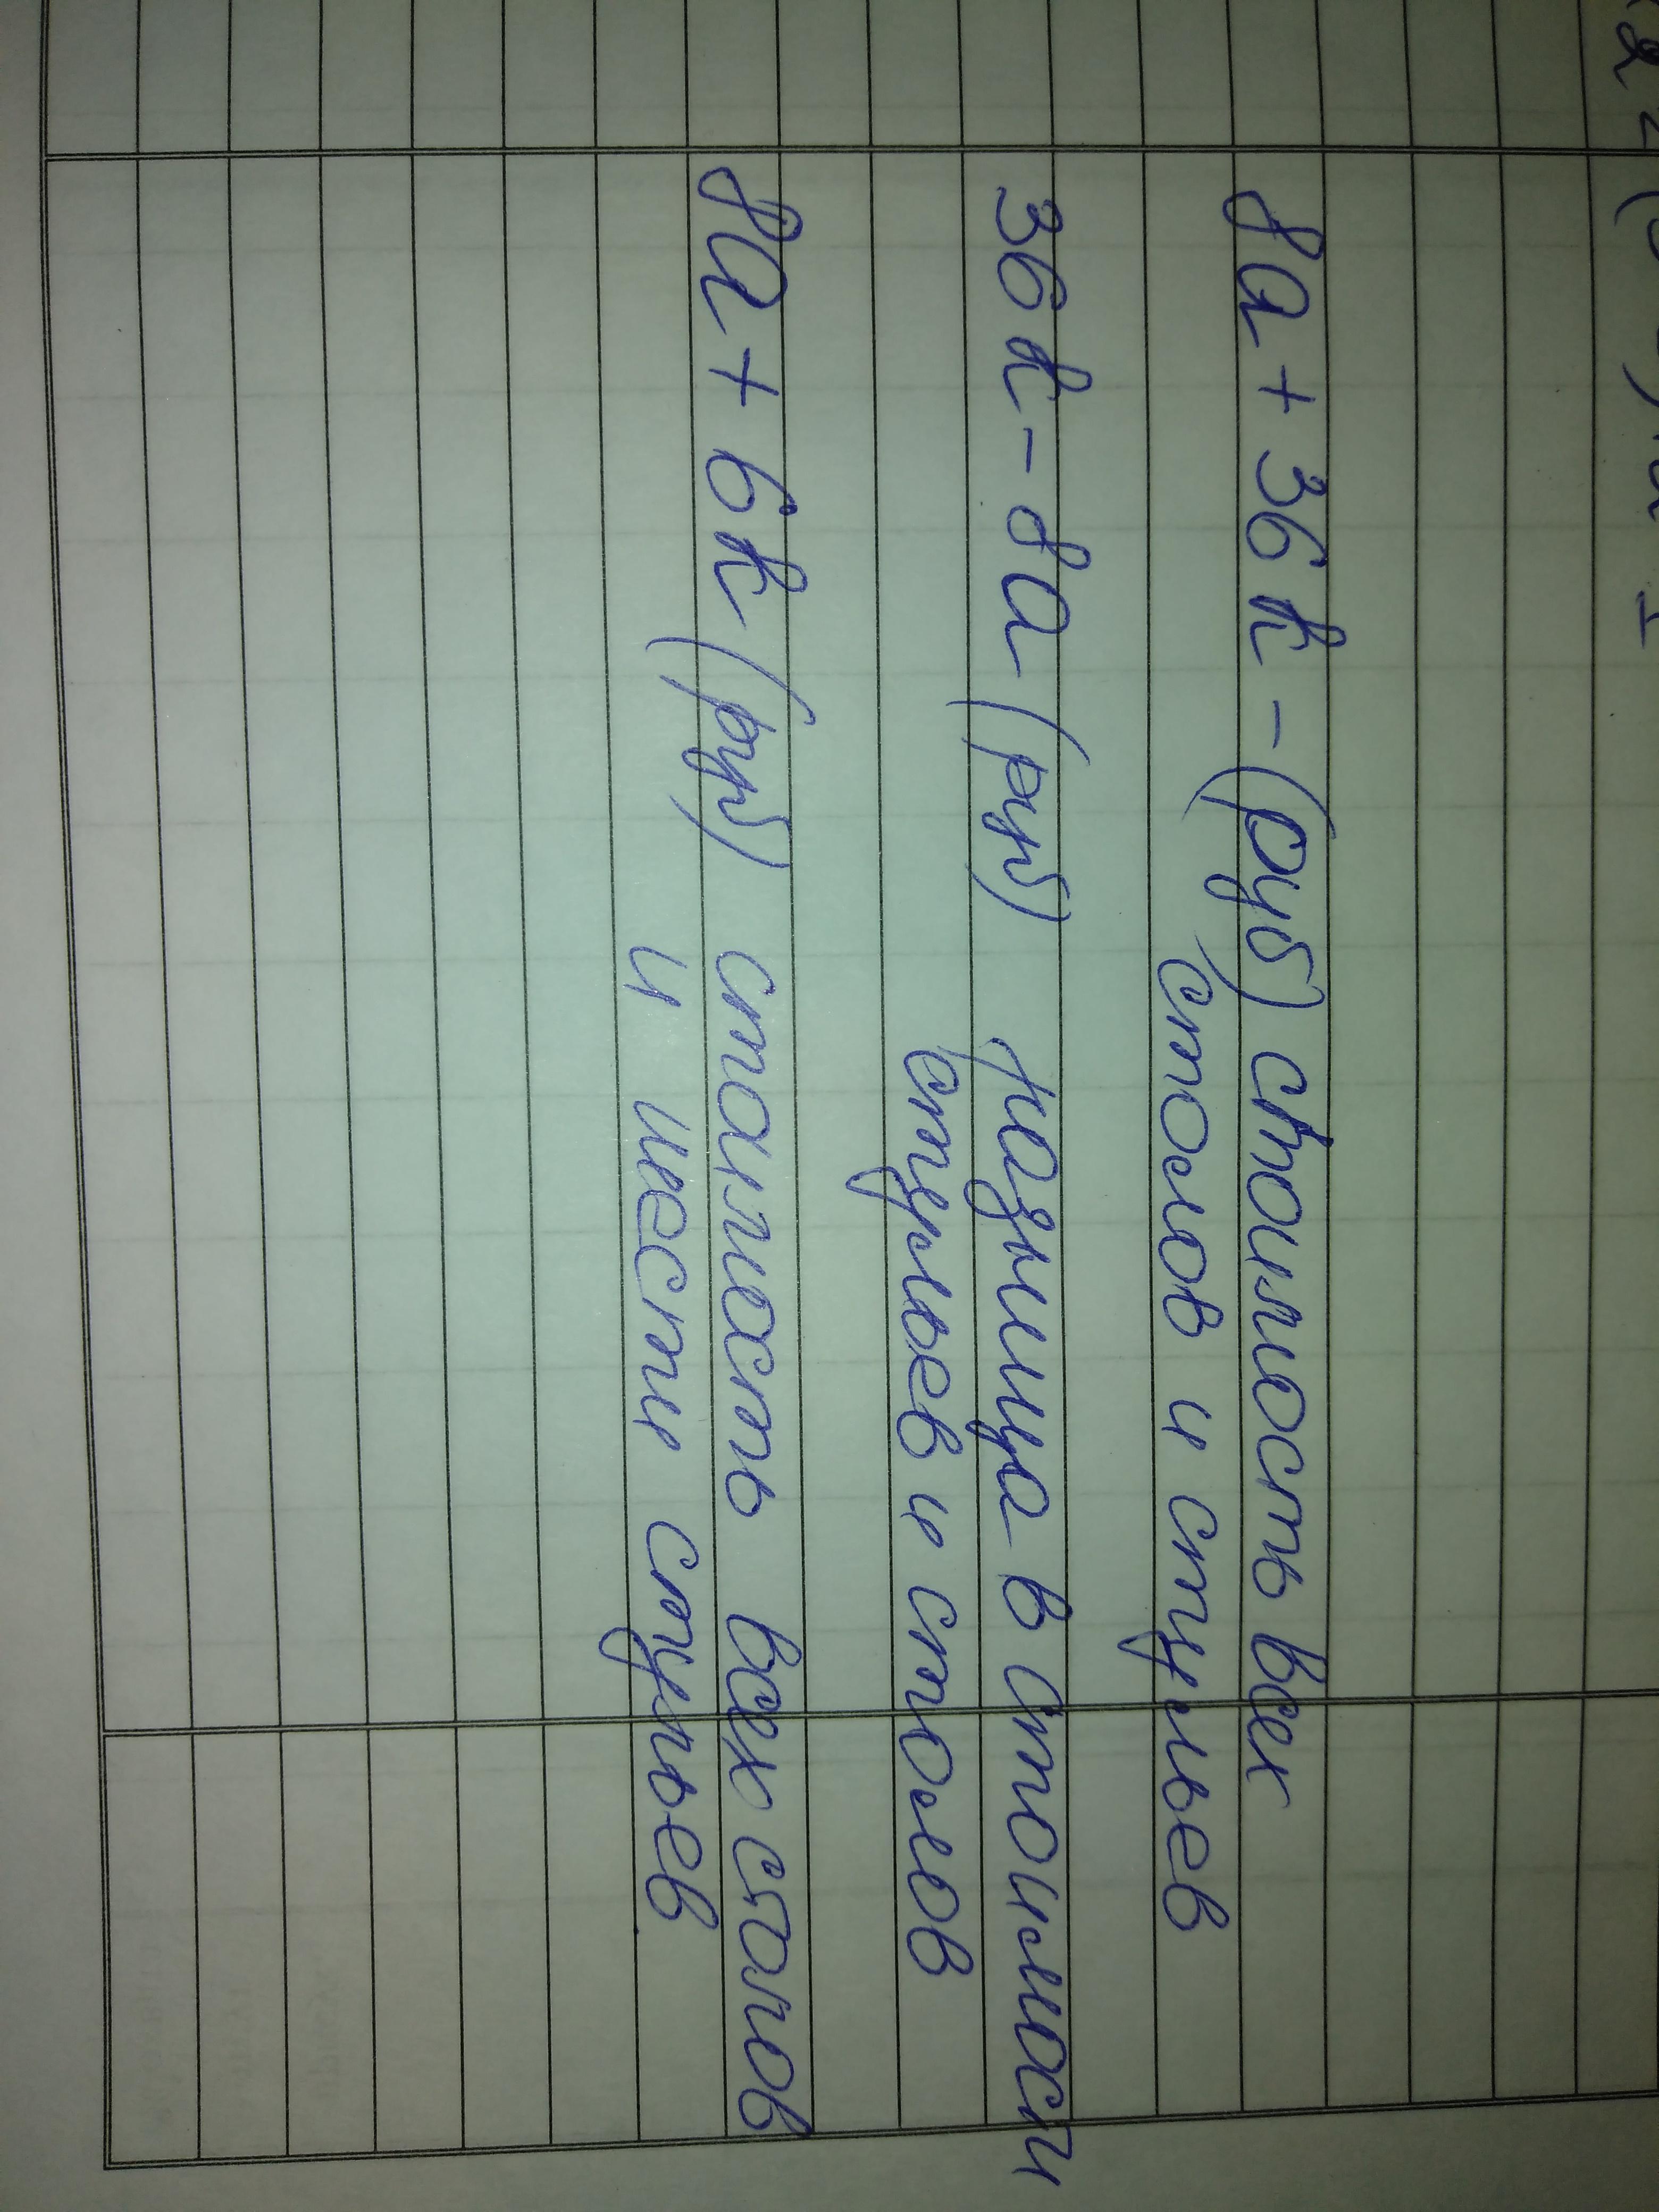 8а + 36k - (руб) стоимость всех
столов и стульев
36k - 8а (руб) разница в стоимости
стульев и столов
8а + 6k (руб) стоимость всех столов
и шести стульев